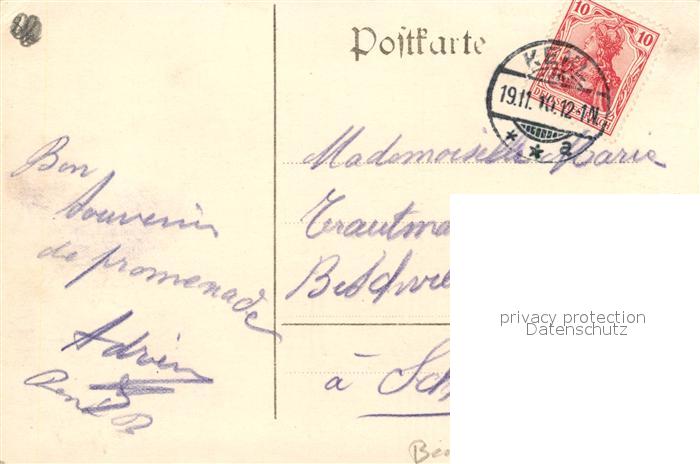 Postkarte
10 10
19.11.10.12-1N.
* * a
Bon
souvenir
de promenade
Adrien
Mademoiselle Marie
Trautma
Bischwi
à Sch
privacy protection
Datenschutz